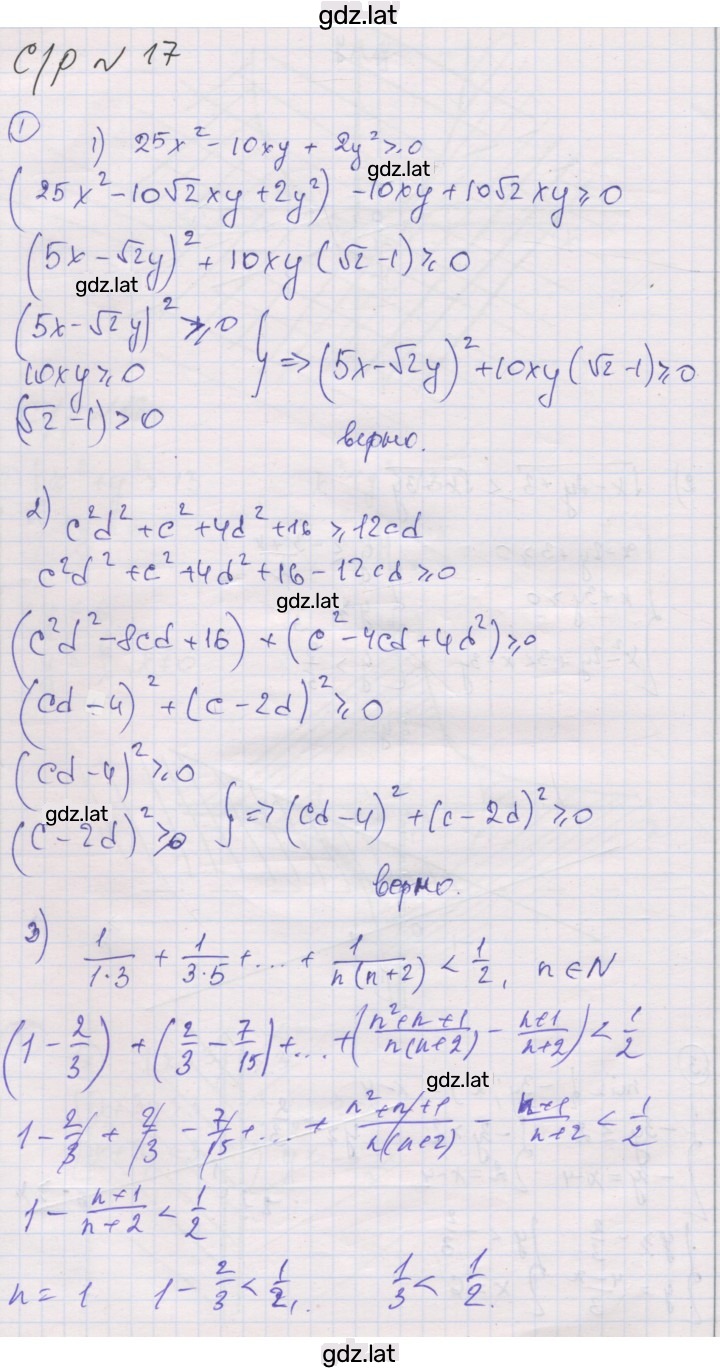 gdz.lat
С/р № 17
① 1) 25x² - 10xy + 2y² ≥ 0
gdz.lat
(25x² - 10√2xy + 2y²) - 10xy + 10√2xy ≥ 0
(5x - √2y)² + 10xy(√2 - 1) ≥ 0
gdz.lat
(5x - √2y)² ≥ 0
10xy ≥ 0
(√2 - 1) > 0
} ⇒ (5x - √2y)² + 10xy(√2 - 1) ≥ 0
верно.
2) c²d² + c² + 4d² + 16 ≥ 12cd
c²d² + c² + 4d² + 16 - 12cd ≥ 0
gdz.lat
(c²d² - 8cd + 16) + (c² - 4cd + 4d²) ≥ 0
(cd - 4)² + (c - 2d)² ≥ 0
(cd - 4)² ≥ 0
gdz.lat
(c - 2d)² ≥ 0
} ⇒ (cd - 4)² + (c - 2d)² ≥ 0
верно.
3) 1/(1·3) + 1/(3·5) + ... + 1/(n(n+2)) < 1/2, n ∈ N
(1 - 2/3) + (2/3 - 7/15) + ... + ((n²+n+1)/(n(n+2)) - (n+1)/(n+2)) < 1/2
gdz.lat
1 - 2/3 + 2/3 - 7/15 + ... + (n²+n+1)/(n(n+2)) - (n+1)/(n+2) < 1/2
1 - (n+1)/(n+2) < 1/2
n = 1 1 - 2/3 < 1/2, 1/3 < 1/2.
gdz.lat